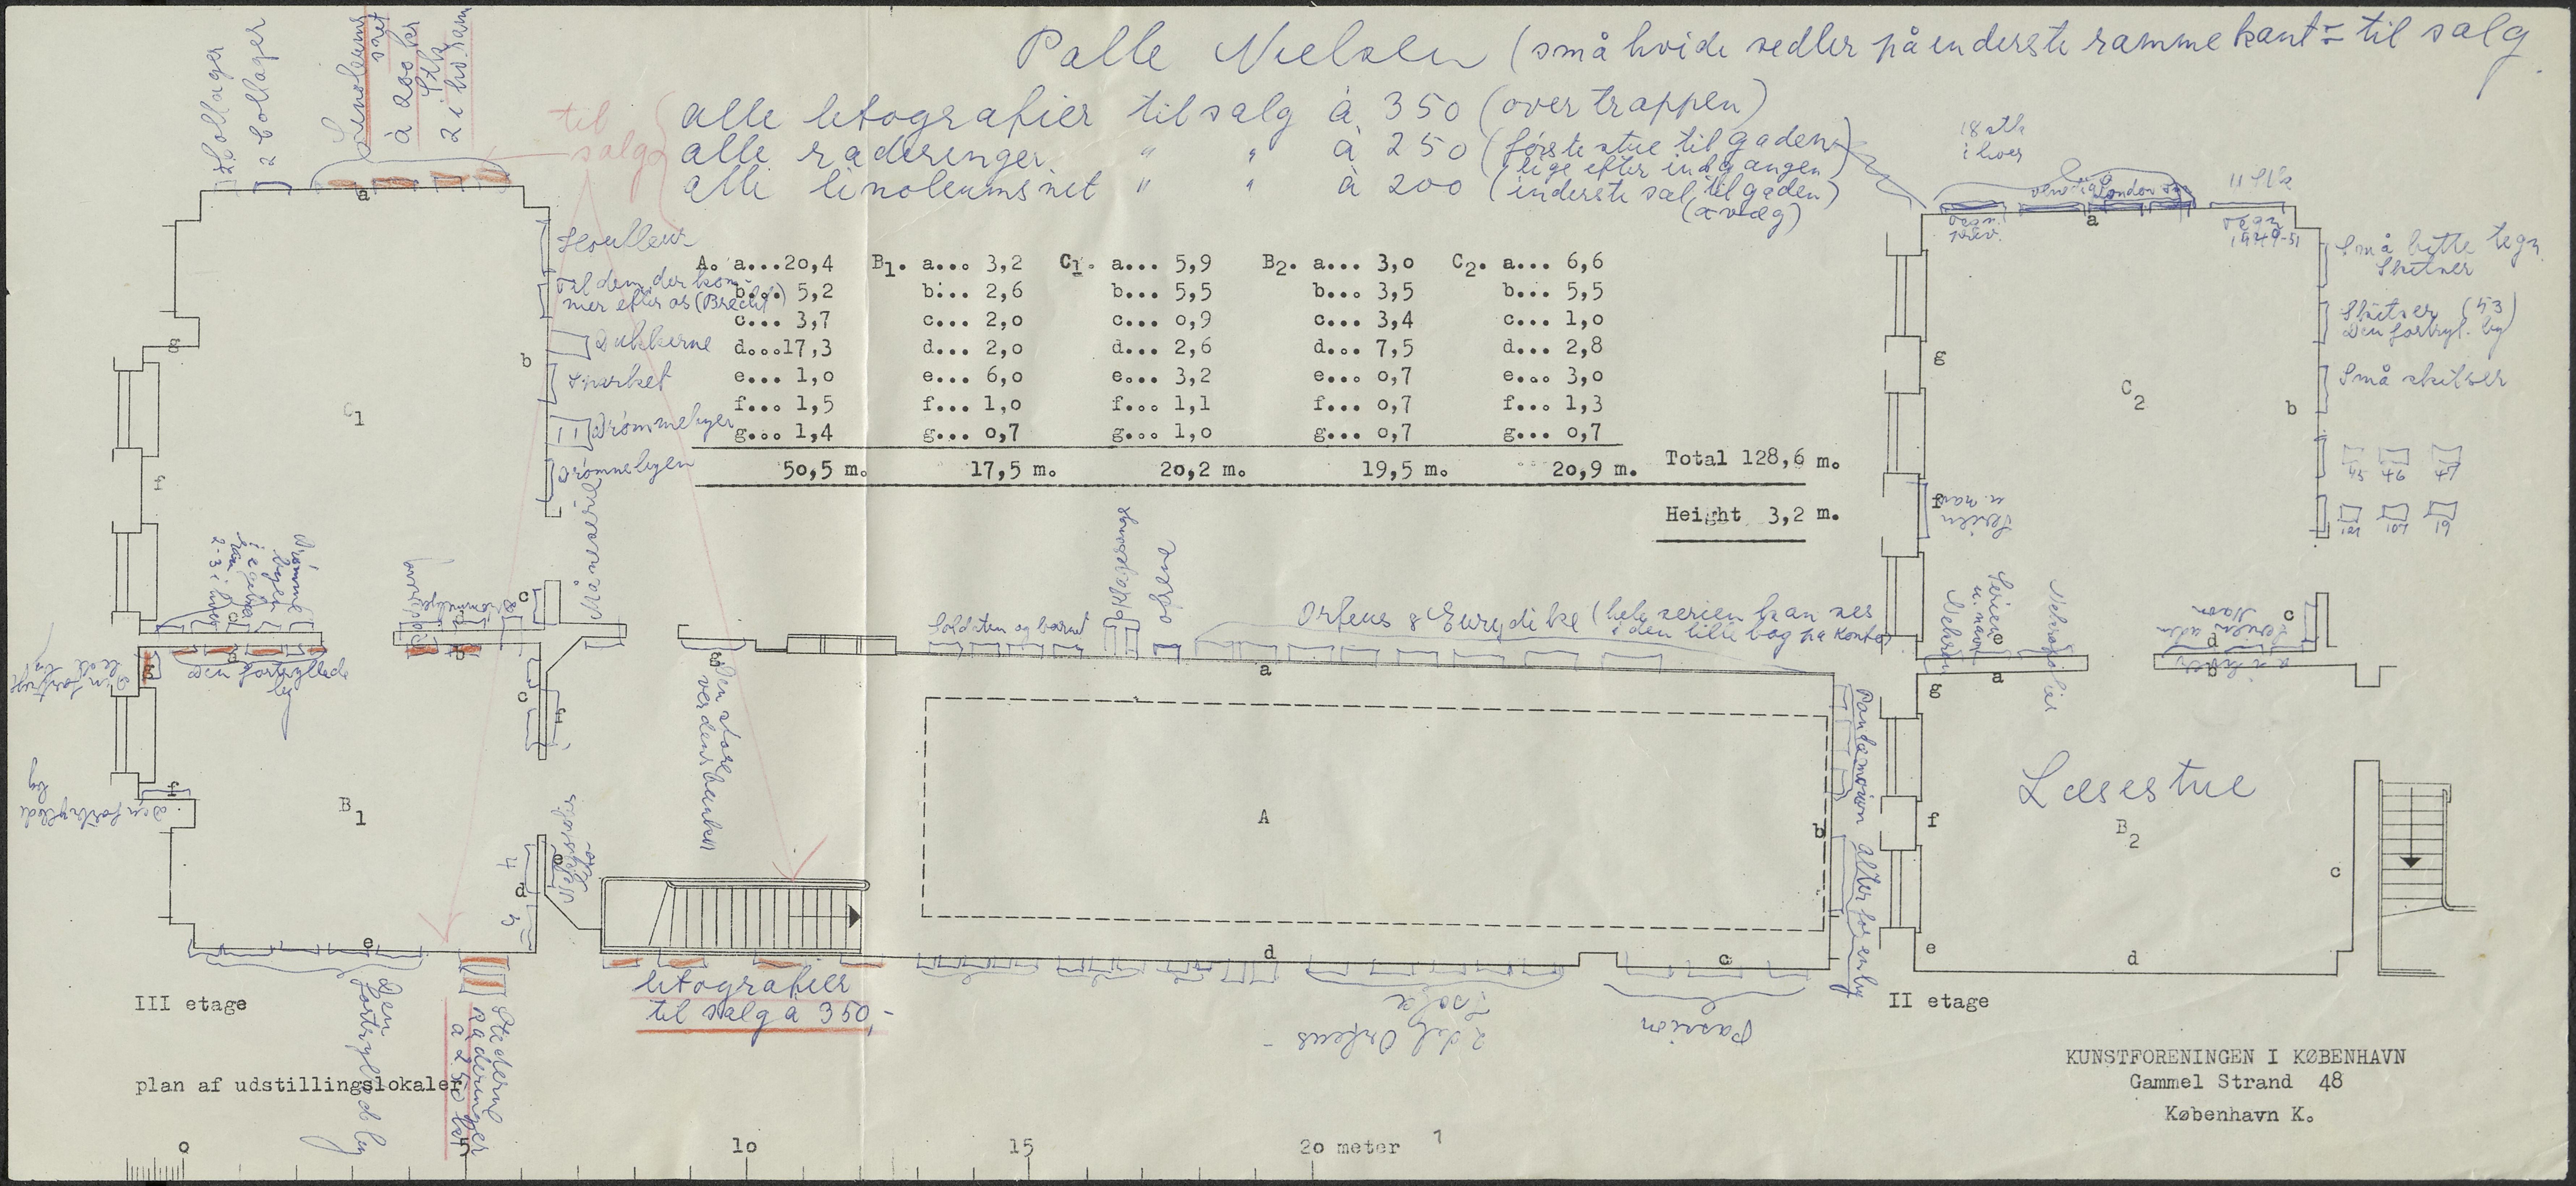 Palle Nielsen (små hvide sedler på enderste rammekant = til salg
til salg
alle letografier til salg à 350 (over trappen)
alle raderinger " " à 250 (første stue til gaden lige efter indgangen)
alle linoleumsnet " " à 200 (inderste sal til gaden) (a væg)
2 collager
Linoleums
snet
à 200 kr
Stk
2 i hv. ram
18 stk
i hver
London
11 stk
tegn
1949-51
Små bitte tegn
Skitser
Skitser (53)
Den fortryl. by
Små skitser
45 46 47
101 101 61
til dem, der kom-
mer efter os (Brecht)
Dukkerne
Drømmebyer
Drømmebyen
Måneserie
A. a...20,4 B1. a... 3,2 C1. a... 5,9 B2. a... 3,0 C2. a... 6,6
b... 5,2 b... 2,6 b... 5,5 b... 3,5 b... 5,5
c... 3,7 c... 2,0 c... 0,9 c... 3,4 c... 1,0
d...17,3 d... 2,0 d... 2,6 d... 7,5 d... 2,8
e... 1,0 e... 6,0 e... 3,2 e... 0,7 e... 3,0
f... 1,5 f... 1,0 f... 1,1 f... 0,7 f... 1,3
g... 1,4 g... 0,7 g... 1,0 g... 0,7 g... 0,7
50,5 m. 17,5 m. 20,2 m. 19,5 m. 20,9 m. Total 128,6 m.
Height 3,2 m.
C1
C2
Drømme
byen
2-3 i hver
Serien
u. navn
Serien
u. navn
Nekropolis
Serien uden
Navn
Soldaten og barnet
Orfeus & Eurydike (hele serien kan ses
i den lille bog på kontor
Den fortryllede
by
Den store
verdensbanken
Pandæmonion
alter for en by
Læsestue
B1
A
B2
Den fortryllede
by
Den
fortrylled by
letografier
til salg a 350,-
Stederne
Raderinger
à 250 kr
2 del Orfeus -
Passion
III etage
II etage
plan af udstillingslokaler
KUNSTFORENINGEN I KØBENHAVN
Gammel Strand 48
København K.
0 10 15 20 meter 1